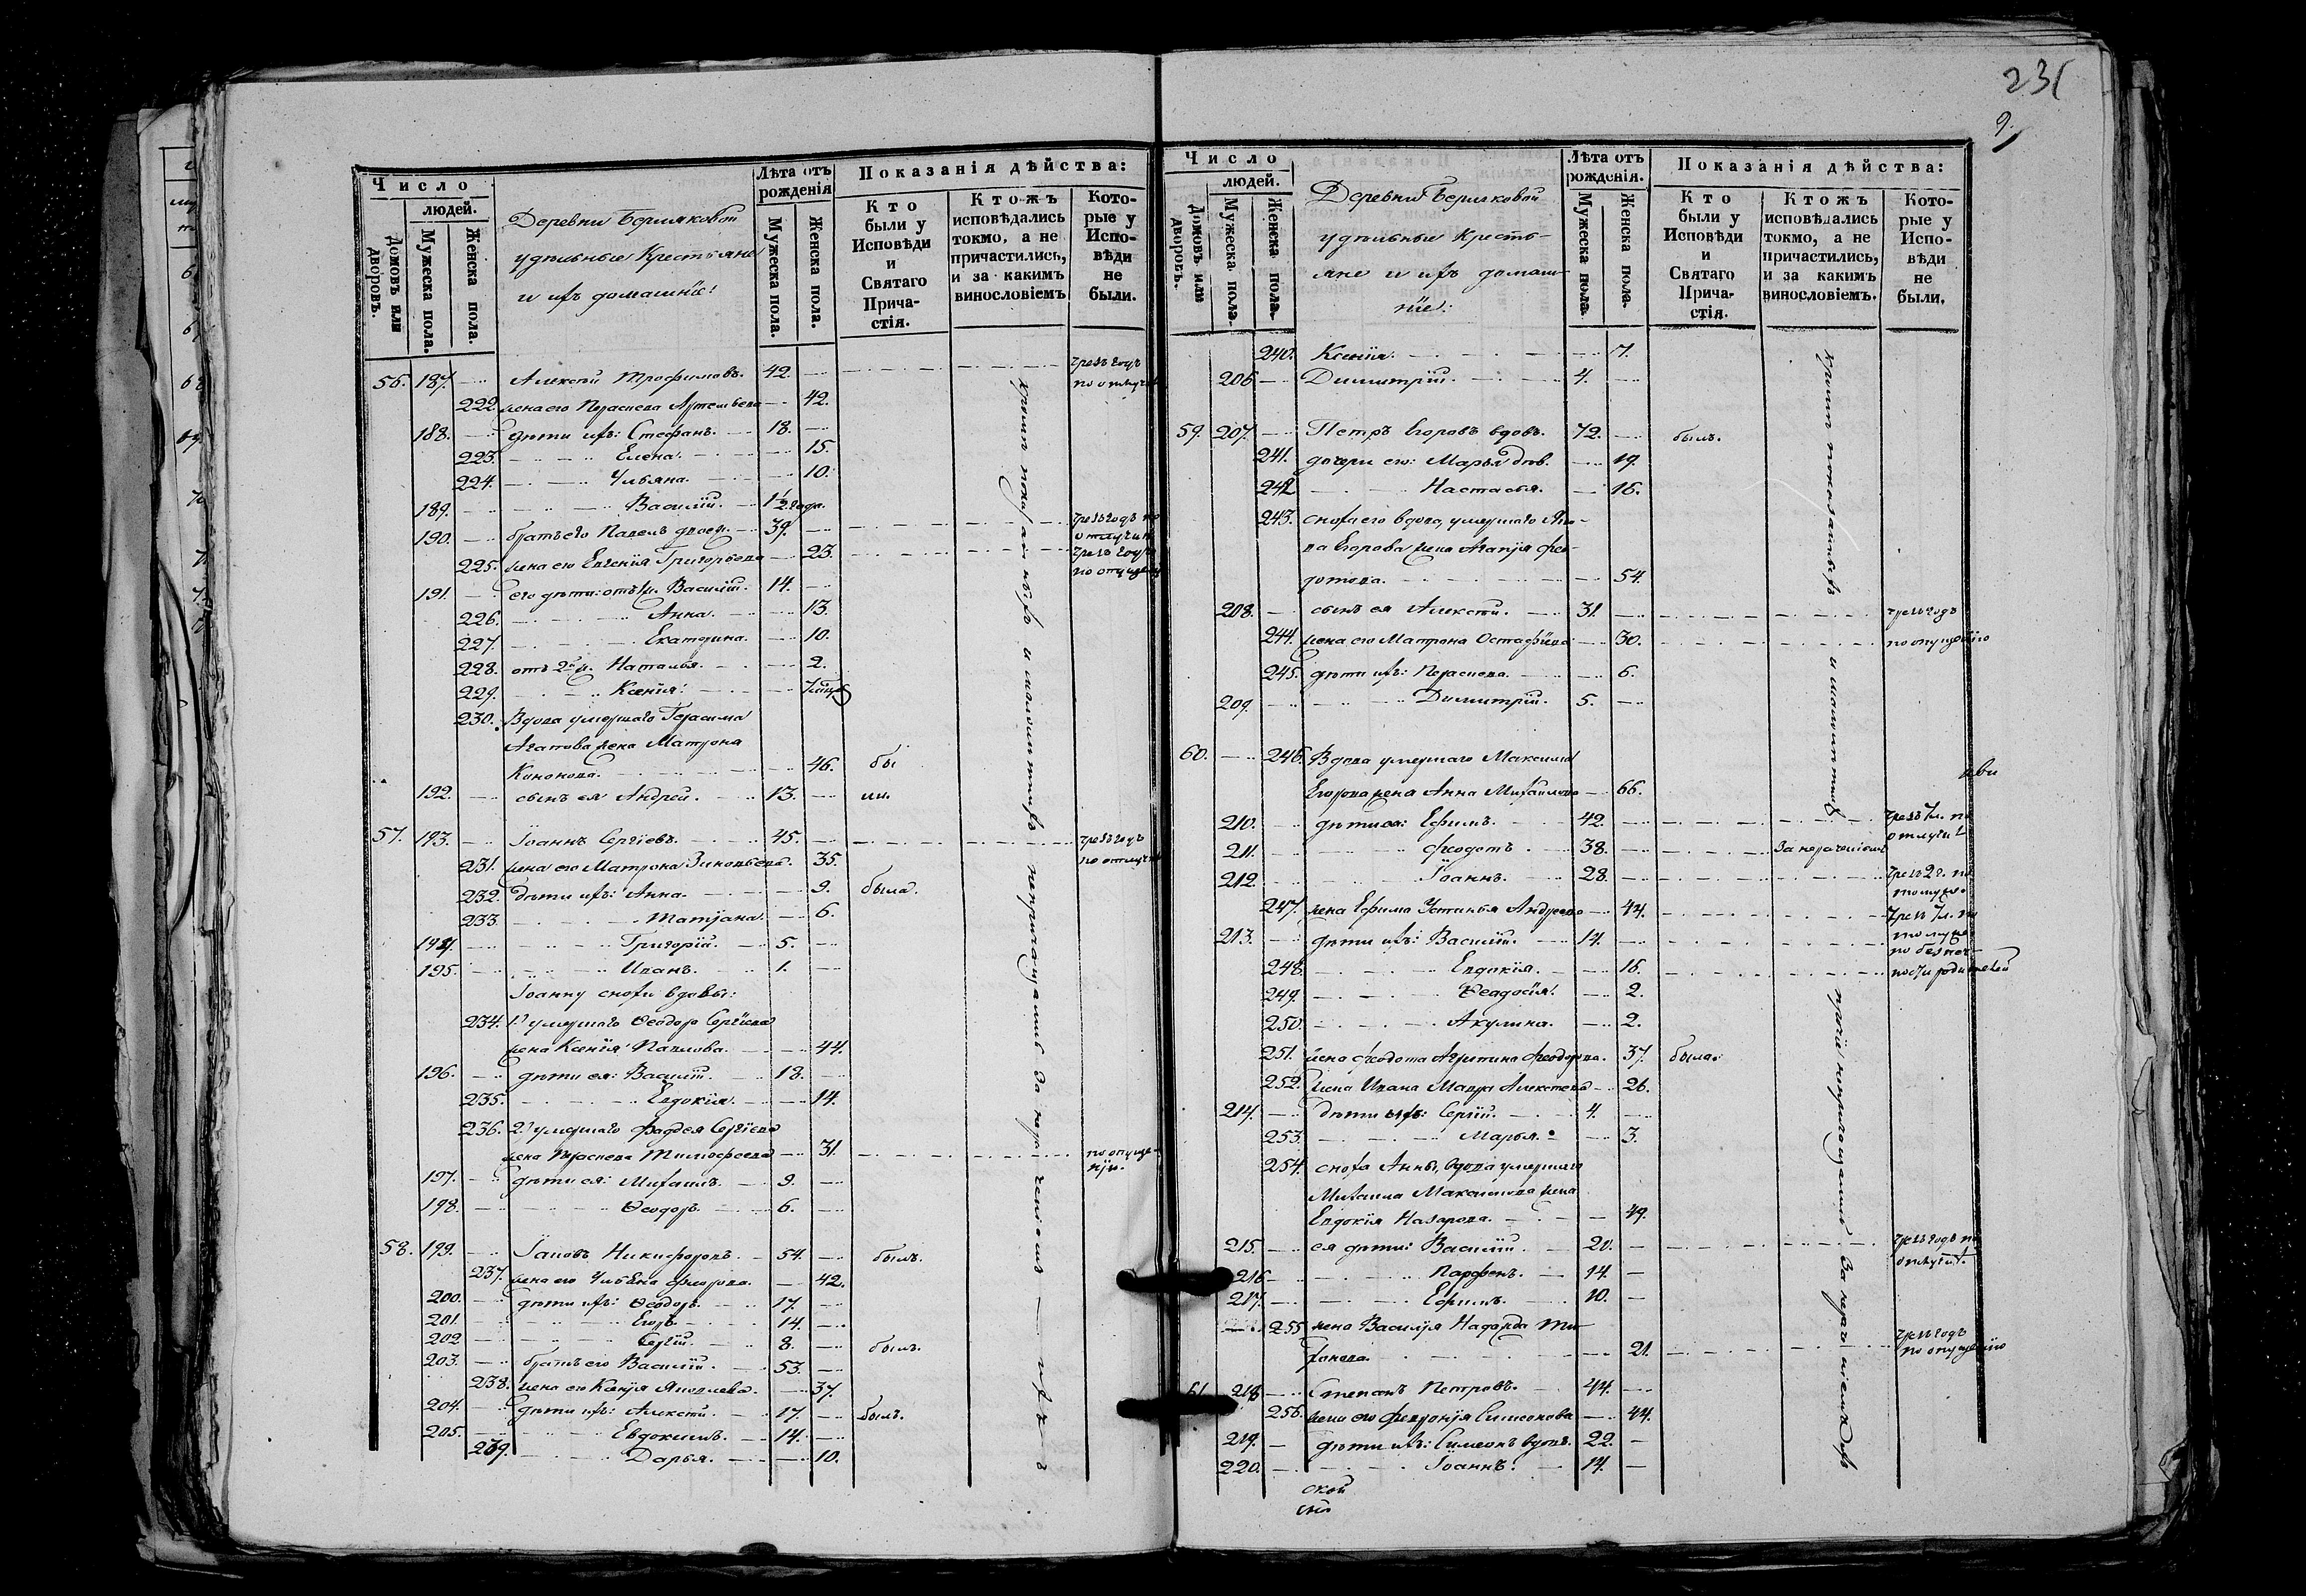 231
9.
Число
людей.
Домовъ или дворовъ.
Мужеска пола.
Женска пола.
Деревни Беришковой
удѣльные Крестьяне
и ихъ домашніе:
Лѣта отъ рожденія
Мужеска пола.
Женска пола.
Показанія дѣйства:
Кто были у Исповѣди и Святаго Прича-стія.
Ктожъ исповѣдались токмо, а не причастились, и за какимъ винословіемъ
Кото-рые у Испо-вѣди не были.
56. 187. Алексѣй Трофимовъ. 42. чрезъ годъ
222. жена его Параскева Артемьева 42.
188. дѣти ихъ: Стефанъ. 18.
223. Елена. 15.
224. Ульяна. 10.
189. Василій. 1 1/2 года.
190. братъ его Павелъ двоен. 39. чрезъ годъ по
225. жена его Евгенія Григорьева 23. чрезъ годъ
191. его дѣти: отъ 1й. Василій. 14.
226. Анна. 13.
227. Екатерина. 10.
228. отъ 2й. Наталья. 2.
229. Ксенія.
230. Вдова умершаго Герасима
Агапова жена Матрона
Кононова. 46. бы
192. сынъ ея Андрей. 13. ли.
57. 193. Іоаннъ Сергіевъ. 45. чрезъ годъ
231. жена его Матрона Зиновьева. 35.
232. дѣти ихъ: Анна. 9. была.
233. Татіана. 6.
194. Григорій. 5.
195. Иванъ. 1.
Іоанну снохи вдовы:
234. 1. умершаго Ѳеодора Сергіева
жена Ксенія Павлова. 44.
196. дѣти ея: Василій. 18.
235. Евдокія. 14.
236. 2. умершаго Фаддея Сергіева
жена Параскева Тимофеева 31. по опуще-
нію.
197. дѣти ея: Михаилъ. 9.
198. Ѳеодоръ. 6.
58. 199. Іаковъ Никифоровъ. 54. былъ.
237. жена его Ульяна Флорова. 42.
200. дѣти ихъ: Ѳеодоръ. 17.
201. Егоръ. 14.
202. Сергій. 8. былъ.
203. братъ его Василій. 53.
238. жена его Ксенія Яковлева. 37.
204. дѣти ихъ: Алексѣй. 17. былъ.
205. Евдокимъ. 14.
239. Дарья. 10.
Число
людей.
Домовъ или дворовъ.
Мужеска пола.
Женска пола.
Деревни Беришковой
удѣльные Кресть-
яне и ихъ домаш-
ніе:
Лѣта отъ рожденія.
Мужеска пола.
Женска пола.
Показанія дѣйства:
Кто были у Исповѣди и Святаго Прича-стія.
Ктожъ исповѣдались токмо, а не причастились, и за какимъ винословіемъ.
Кото-рые у Испо-вѣди не были.
240. Ксенія. 7.
206. Димитрій. 4.
59. 207. Петръ Егоровъ вдовъ. 72. былъ.
241. дочери его: Марья дѣв. 19.
242. Настасья. 16.
243. сноха его вдова, умершаго
Егорова жена Агапія Фео-
дотова. 54.
208. сынъ ея Алексѣй. 31. чрезъ годъ
244. жена его Матрона Остафіева 30. по опущенію
245. дѣти ихъ: Параскева. 6.
209. Димитрій. 5.
60. 246. Вдова умершаго Максима
Егорова жена Анна Михайлова 66.
210. дѣти ея: Ефимъ. 42. чрезъ 7 л. по
отлучкѣ
211. Феодотъ. 38. За нерачѣніемъ
212. Іоаннъ. 28. чрезъ 2 г. по
247. жена Ефима Устинья Андреева 44. чрезъ 7 л. по
213. дѣти ихъ: Василій. 14.
248. Евдокія. 16. по безпеч-
ности родителей
249. Ѳеодосія. 2.
250. Акулина. 2.
251. жена Феодота Агрипина Феодорова. 37. была.
252. жена Ивана Мавра Алексѣева 26.
214. дѣти ихъ: Сергій. 4.
253. Марья. 3.
254. сноха Анны, вдова умершаго
Михаила Максимова жена
Евдокія Назарова. 49.
215. ея дѣти: Василій. 20. чрезъ годъ по
отлучкѣ.
216. Парфенъ. 14.
217. Ефимъ. 10.
255. жена Василія Надежда Ти-
ханова. 21. чрезъ годъ
по опущенію
61. 218. Степанъ Петровъ. 44.
256. жена его Февронія Симеонова 44.
219. дѣти ихъ: Симеонъ вдовъ. 22.
220. Іоаннъ. 14.